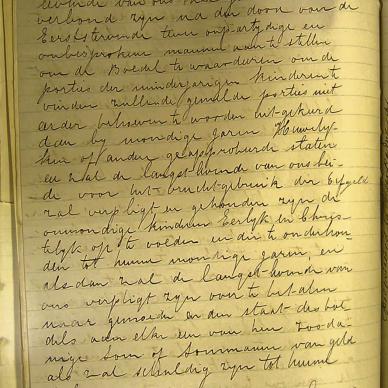 levende van ons
verbond zijn na den dood van de
Eerststervende twee onpartydige en
onbesproken mannen aan te stellen
om de Boedel te waardeeren om de
porties der minderjarigen kinderen te
vinden zullende gemelde porties niet
eerder behoeven te worden uit-gekeerd
dan by mondige jaren Huwely-
kin of ander geapprobeerde staten
en zal de langst-levende van ons bei-
de voor het brucht-gebruik der Erfgeld
zal verpligt en gehouden zijn de
onmondige kinderen Eerlyk en Chris-
telyk op te voeden en die te onderhou-
den tot hunne mondige jaren, en
als dan zal de langst-levende van
ons verpligt zijn over te betalen
naar gemoede en den staat des boe
dels aan elk een van hen zooda-
nige som of sommamen van geld
als zal schuldig zijn tot hunne